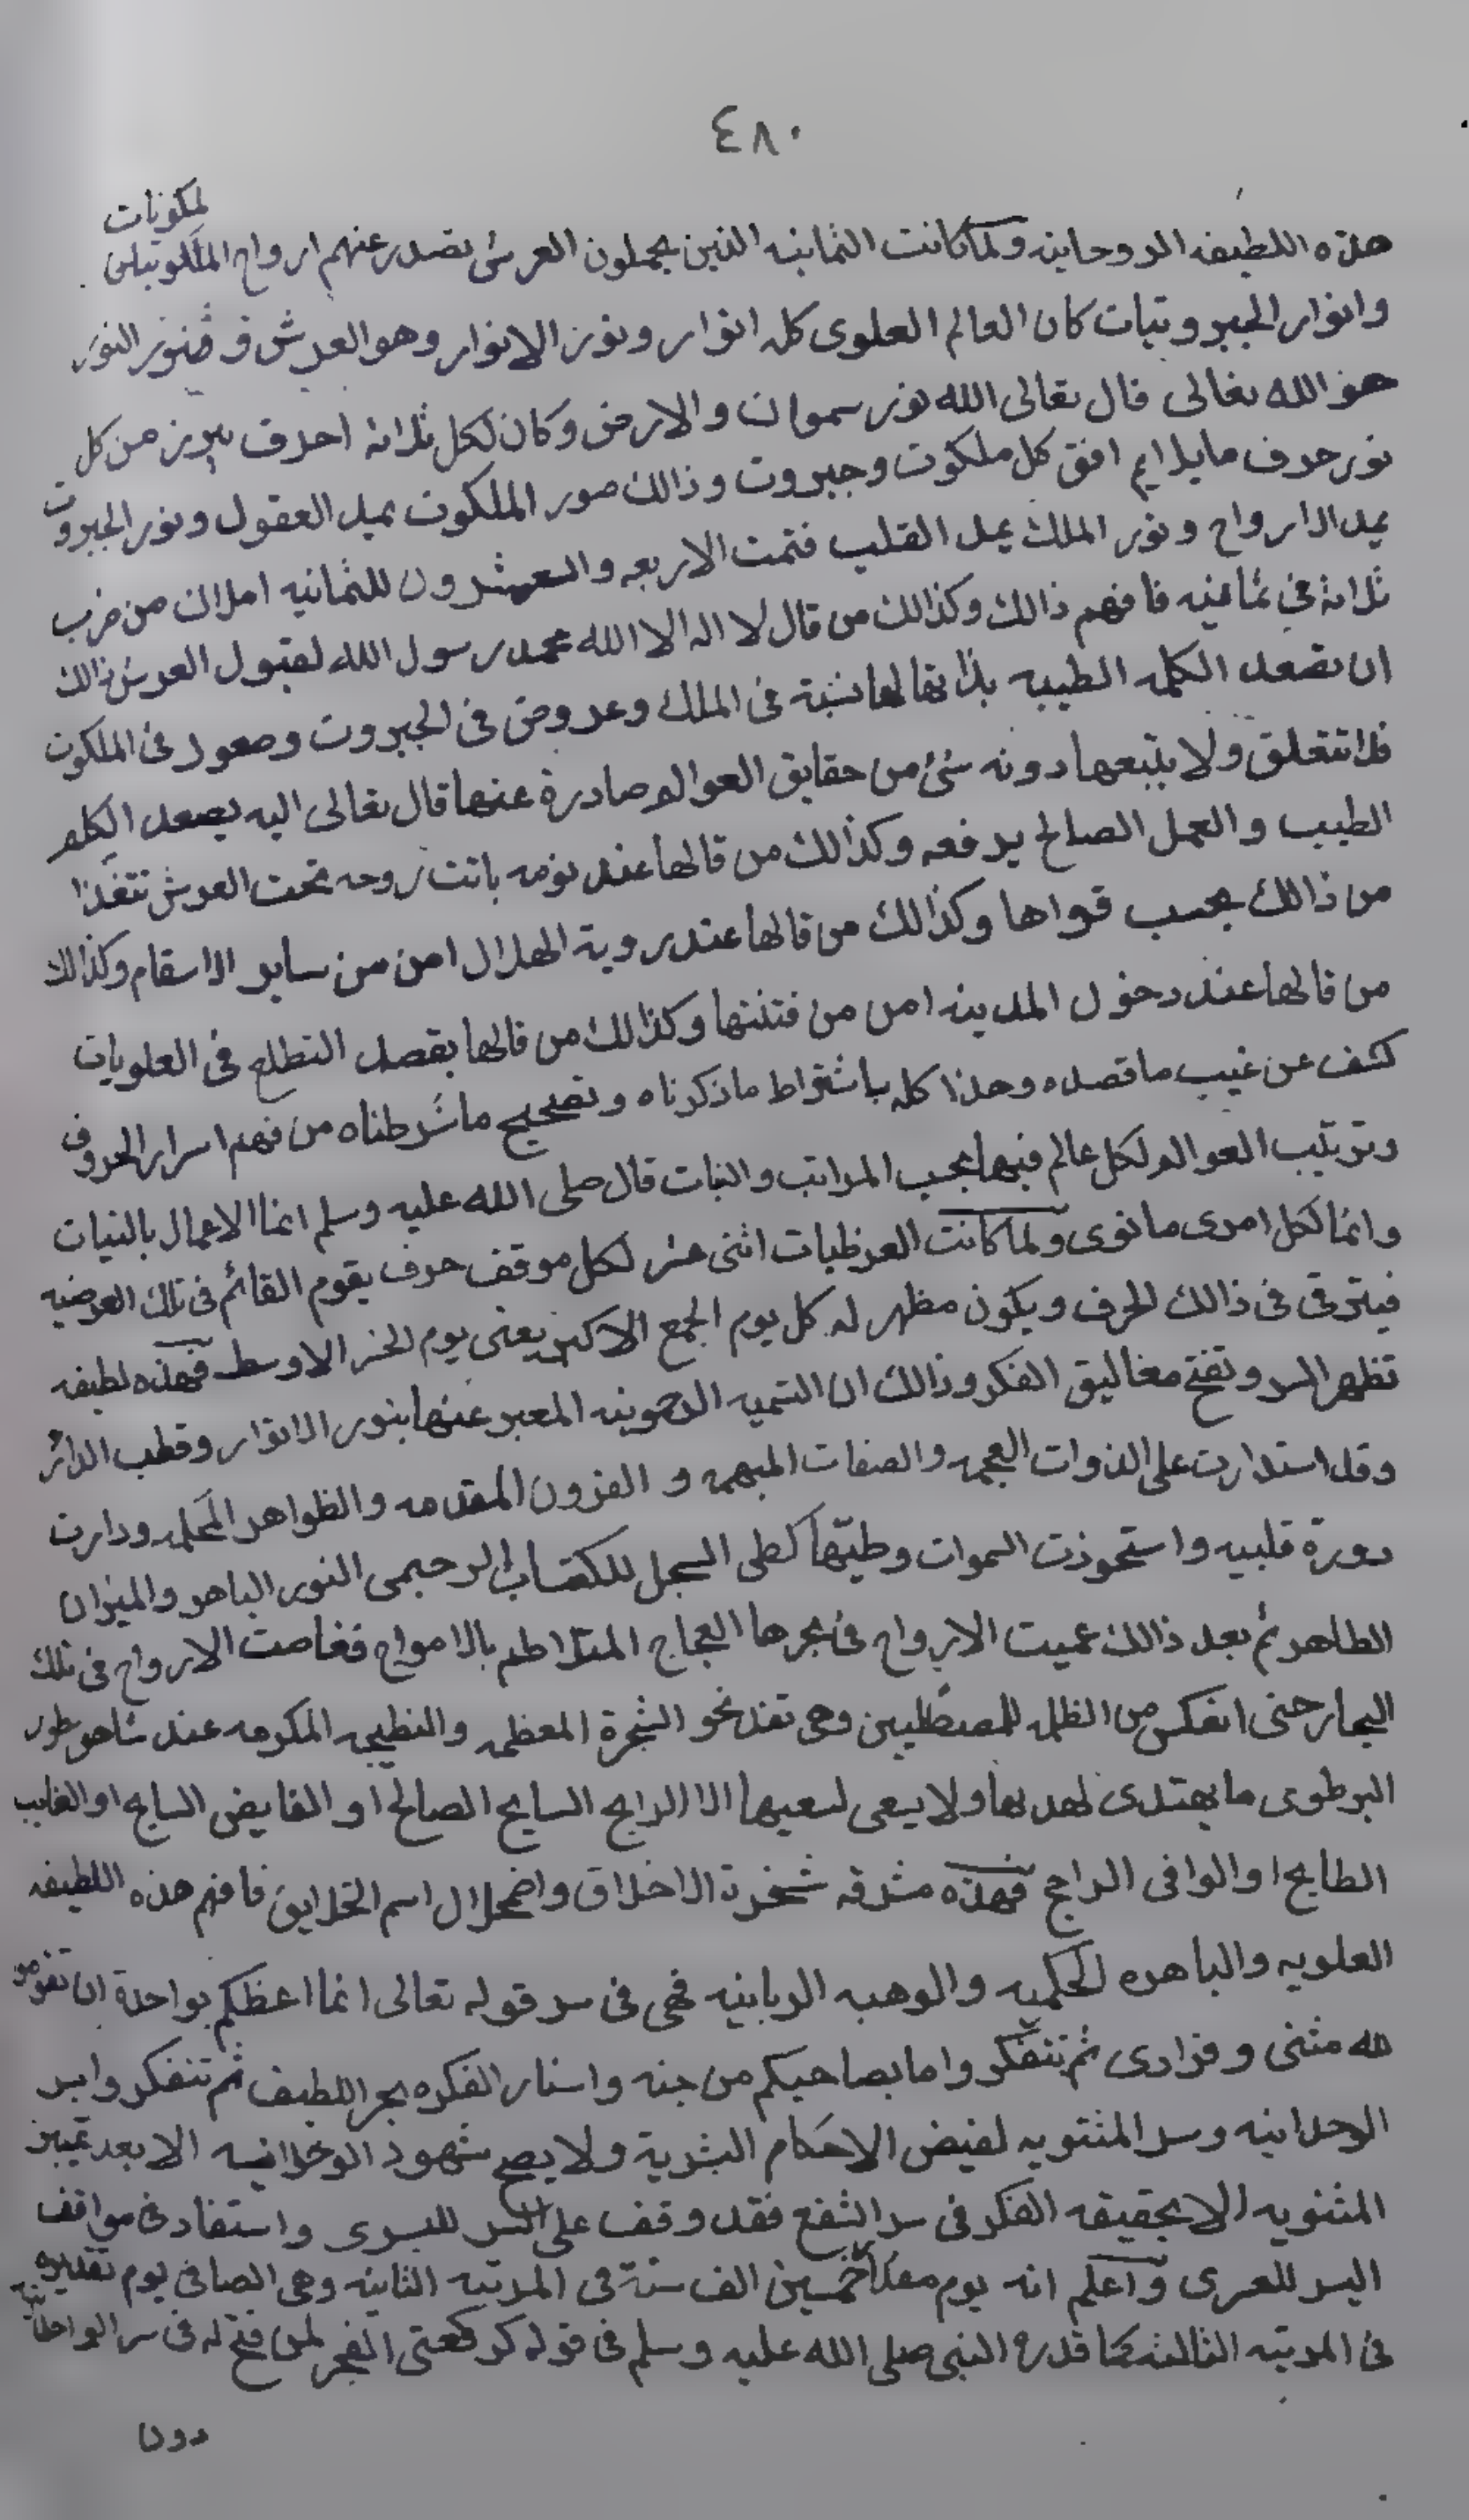 ٤٨٠
لمكونات
هذه اللطيفه الروحانيه ولما كانت الثمانيه الذين يحملون العرش تصدر عنهم ارواح
وانوار الجبروتيات كان العالم العلوى كله انوار ونور الانوار وهو العرش النور
هو الله تعالى قال تعالى الله نور سموات والارض وكان لكل ثلاثة احرف يبرز من كل
نور حرف ما يلايم افق كل ملكوت وجبروت وذالك صور الملكوت يميل العقول ونور الجبروت
يمد الارواح ونور الملك يمد القلب فتمت الاربعه والعشرون للثمانيه املاك من ضرب
ثلاثة في ثمانيه فافهم ذالك وكذالك من قال لا اله الا الله محمد رسول الله لقبول العرش ذالك
ان تصعد الكلمه الطيبه بذاتها لها نسبة فى الملك وعروض فى الجبروت وصعود فى الملكوت
فلا تتعلق ولا يتبعها دونه شئ من حقايق العوالم صادرة عنها قال تعالى اليه يصعد الكلم
الطيب والعمل الصالح يرفعه وكذالك من قالها عند نومه باتت روحه تحت العرش تتغذا
من ذالك بحسب قواها وكذالك من قالها عند روية الهلال امن من ساير الاسقام وكذالك
من قالها عند دخول المدينه امن من فتنتها وكذالك من قالها بقصد التطلع فى العلويات
كشف عن غيب ما قصده وهذا كله باشتراط ماذكرناه وتصحيح ما شرطناه من فهم اسرار الحروف
وترتيب العوالم لكل عالم فيها بحسب المراتب والنيات قال صلى الله عليه وسلم انما الاعمال بالنيات
وانما لكل امرى ما نوى ولما كانت العرظيات اثنى عشر لكل موقف حرف يقوم القائم فى تلك العرضيه
فيترقى فى ذالك الحرف ويكون مظهر له كل يوم الجمع الاكبر يعنى يوم الاوسط فهذه لطيفه
تظهر السر وتفتح مغاليق الفكر وذالك ان التميه المعبر عنها بنور الانوار وقطب الدائر
وقد استدارت على الذوات العجمه والصفات المبهمه و القرون المقدمه والظواهر المحله ودارت
دورة قلبيه واستحوذت السموات وطيتها كطى السجل للكتاب الرحيمى النور الباهر والميزان
الطاهر ثم بعد ذالك عميت الارواح فى بحرها العجاج المتلاطم بالامواج فغاصت الارواح فى تلك
البحار حتى انعكس من الظله وهى تغد نحو الشجرة المعظمه المكرمه عند شاهق طور
البر طوى ما يهتدى لهد بها ولا يسعى لسعيها الا الرابح السايح الصالح او الفايض السابح او الغايب
الطايح او الوافى الراجح فهذه مشرقه الاخلاق واضمحلال اسم الخلايق فافهم هذه اللطيفه
العلويه والباهره الحكميه والوهبه الربانيه فهى فى سر قوله تعالى انما اعظكم بواحدة ان تقومو
لله مثنى وفرادى ثم تتفكروا ما بصاحبكم من جنه واستار الفكره بحر اللطيف ثم تتفكروا بسر
الوحدانيه وسر المثنويه لفيض الاحكام البشرية ولا يصح شهود الوحدانيه الا بعد تمييز
المثنويه الا بحقيقه الفكر فى سر الشفع فقد وقف على السر لليسرى واستفاد فى مواقف
اليسر للعسرى واعلم انه يوم مقداره خمسين الف سنة فى المرتبه الثانيه وهى الصافى يوم تقديره
فى المرتبه الثالثه كما قدره النبى صلى الله عليه وسلم فى قوله كركعتى الفجر لمن فتح له فى سر الوحدانيه
دون